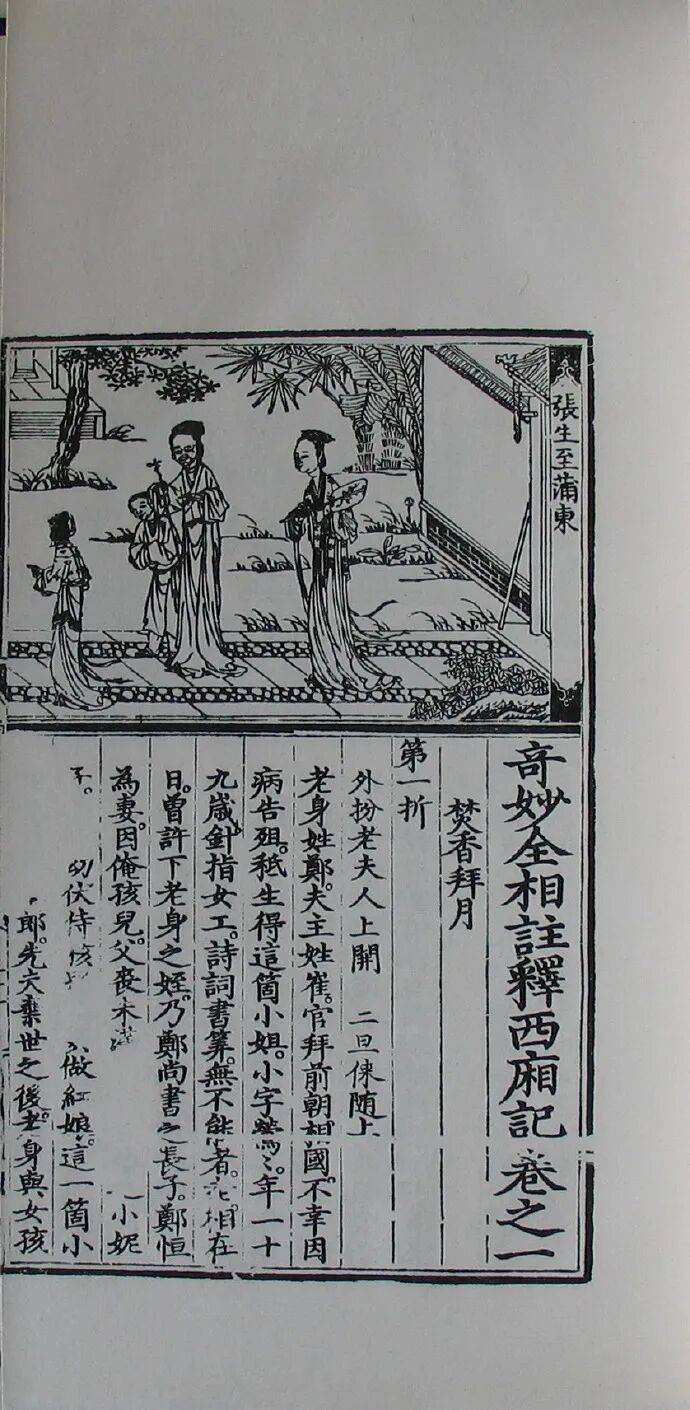 張生至蒲東
奇妙全相註釋西廂記卷之一
焚香拜月
第一折
外扮老夫人上開　二旦俫随上
老身姓鄭。夫主姓崔。官拜前朝相國。不幸因
病告殂。秪生得這箇小姐。小字鶯々。年一十
九歲。針指女工。詩詞書算。無不能者。相在
日。曾許下老身之姪。乃鄭尚書之長子。鄭恒
為妻。因俺孩兒。父喪未　一小妮
子。　幼伏侍孩　做紅娘。這一箇小
郎。先夫棄世之後。老身與女孩